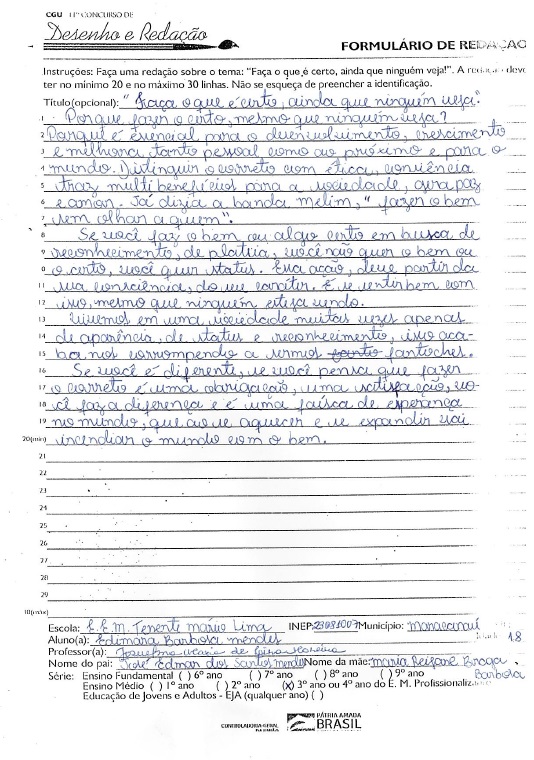 CGU 11º CONCURSO DE
Desenho e Redação
FORMULÁRIO DE REDAÇÃO
Instruções: Faça uma redação sobre o tema: "Faça o que é certo, ainda que ninguém veja!". A redação deve
ter no mínimo 20 e no máximo 30 linhas. Não se esqueça de preencher a identificação.
Título(opcional): "Faça o que é certo, ainda que ninguém veja".
1 Porque fazer o certo, mesmo que ninguém veja?
2 Porque é esencial para o desenvolvimento, crescimento
3 e melhora, tanto pessoal como ao próximo e para o
4 mundo. Distinguir o correto com ética, conviência
5 traz multi benefícios para a sociedade, gera paz
6 e amor. Já dizia a banda melim, "fazer o bem
7 sem olhar a quem".
8 Se você faz o bem ou algo certo em busca de
9 reconhecimento, de platéia, você não quer o bem ou
0 o certo, você quer status. Essa ação, deve partir da
11 sua consciência, do seu caráter. E se sentir bem com
12 isso, mesmo que ninguém esteja vendo.
13 Vivemos em uma sociedade muitas vezes apenas
14 de aparência, de status e reconhecimento, isso aca-
15 ba nos corrompendo a sermos fantoches.
16 Se você é diferente, se você pensa que fazer
17 o correto é uma obrigação, uma satisfação, vo-
18 cê faz a diferença e é uma faísca de esperança
19 no mundo, que ao se aquecer e se expandir vai
20(mín) incendiar o mundo com o bem.
21
22
23
24
25
26
27
28
29
30(máx)
Escola: E.E.M. Tenente mário Lima INEP: 23081007 Município: Maracanaú
Aluno(a): Edimara Barbosa mendes Idade 18
Professor(a):
Nome do pai: José Edmar dos Santos mendes Nome da mãe: maria Braga Barbosa
Série: Ensino Fundamental ( ) 6º ano ( ) 7º ano ( ) 8º ano ( ) 9º ano
Ensino Médio ( ) 1º ano ( ) 2º ano (x) 3º ano ou 4º ano do E. M. Profissionaliz.
Educação de Jovens e Adultos - EJA (qualquer ano) ( )
CONTROLADORIA-GERAL DA UNIÃO
PÁTRIA AMADA
BRASIL